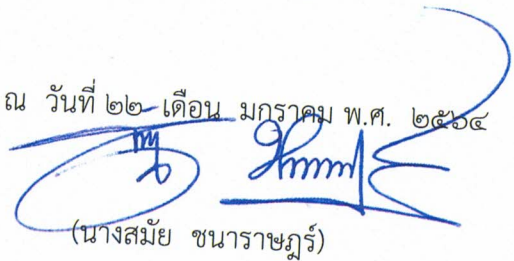 ณ วันที่ ๒๒ เดือน มกราคม พ.ศ. ๒๕๖๔
(นางสมัย ชนาราษฎร์)